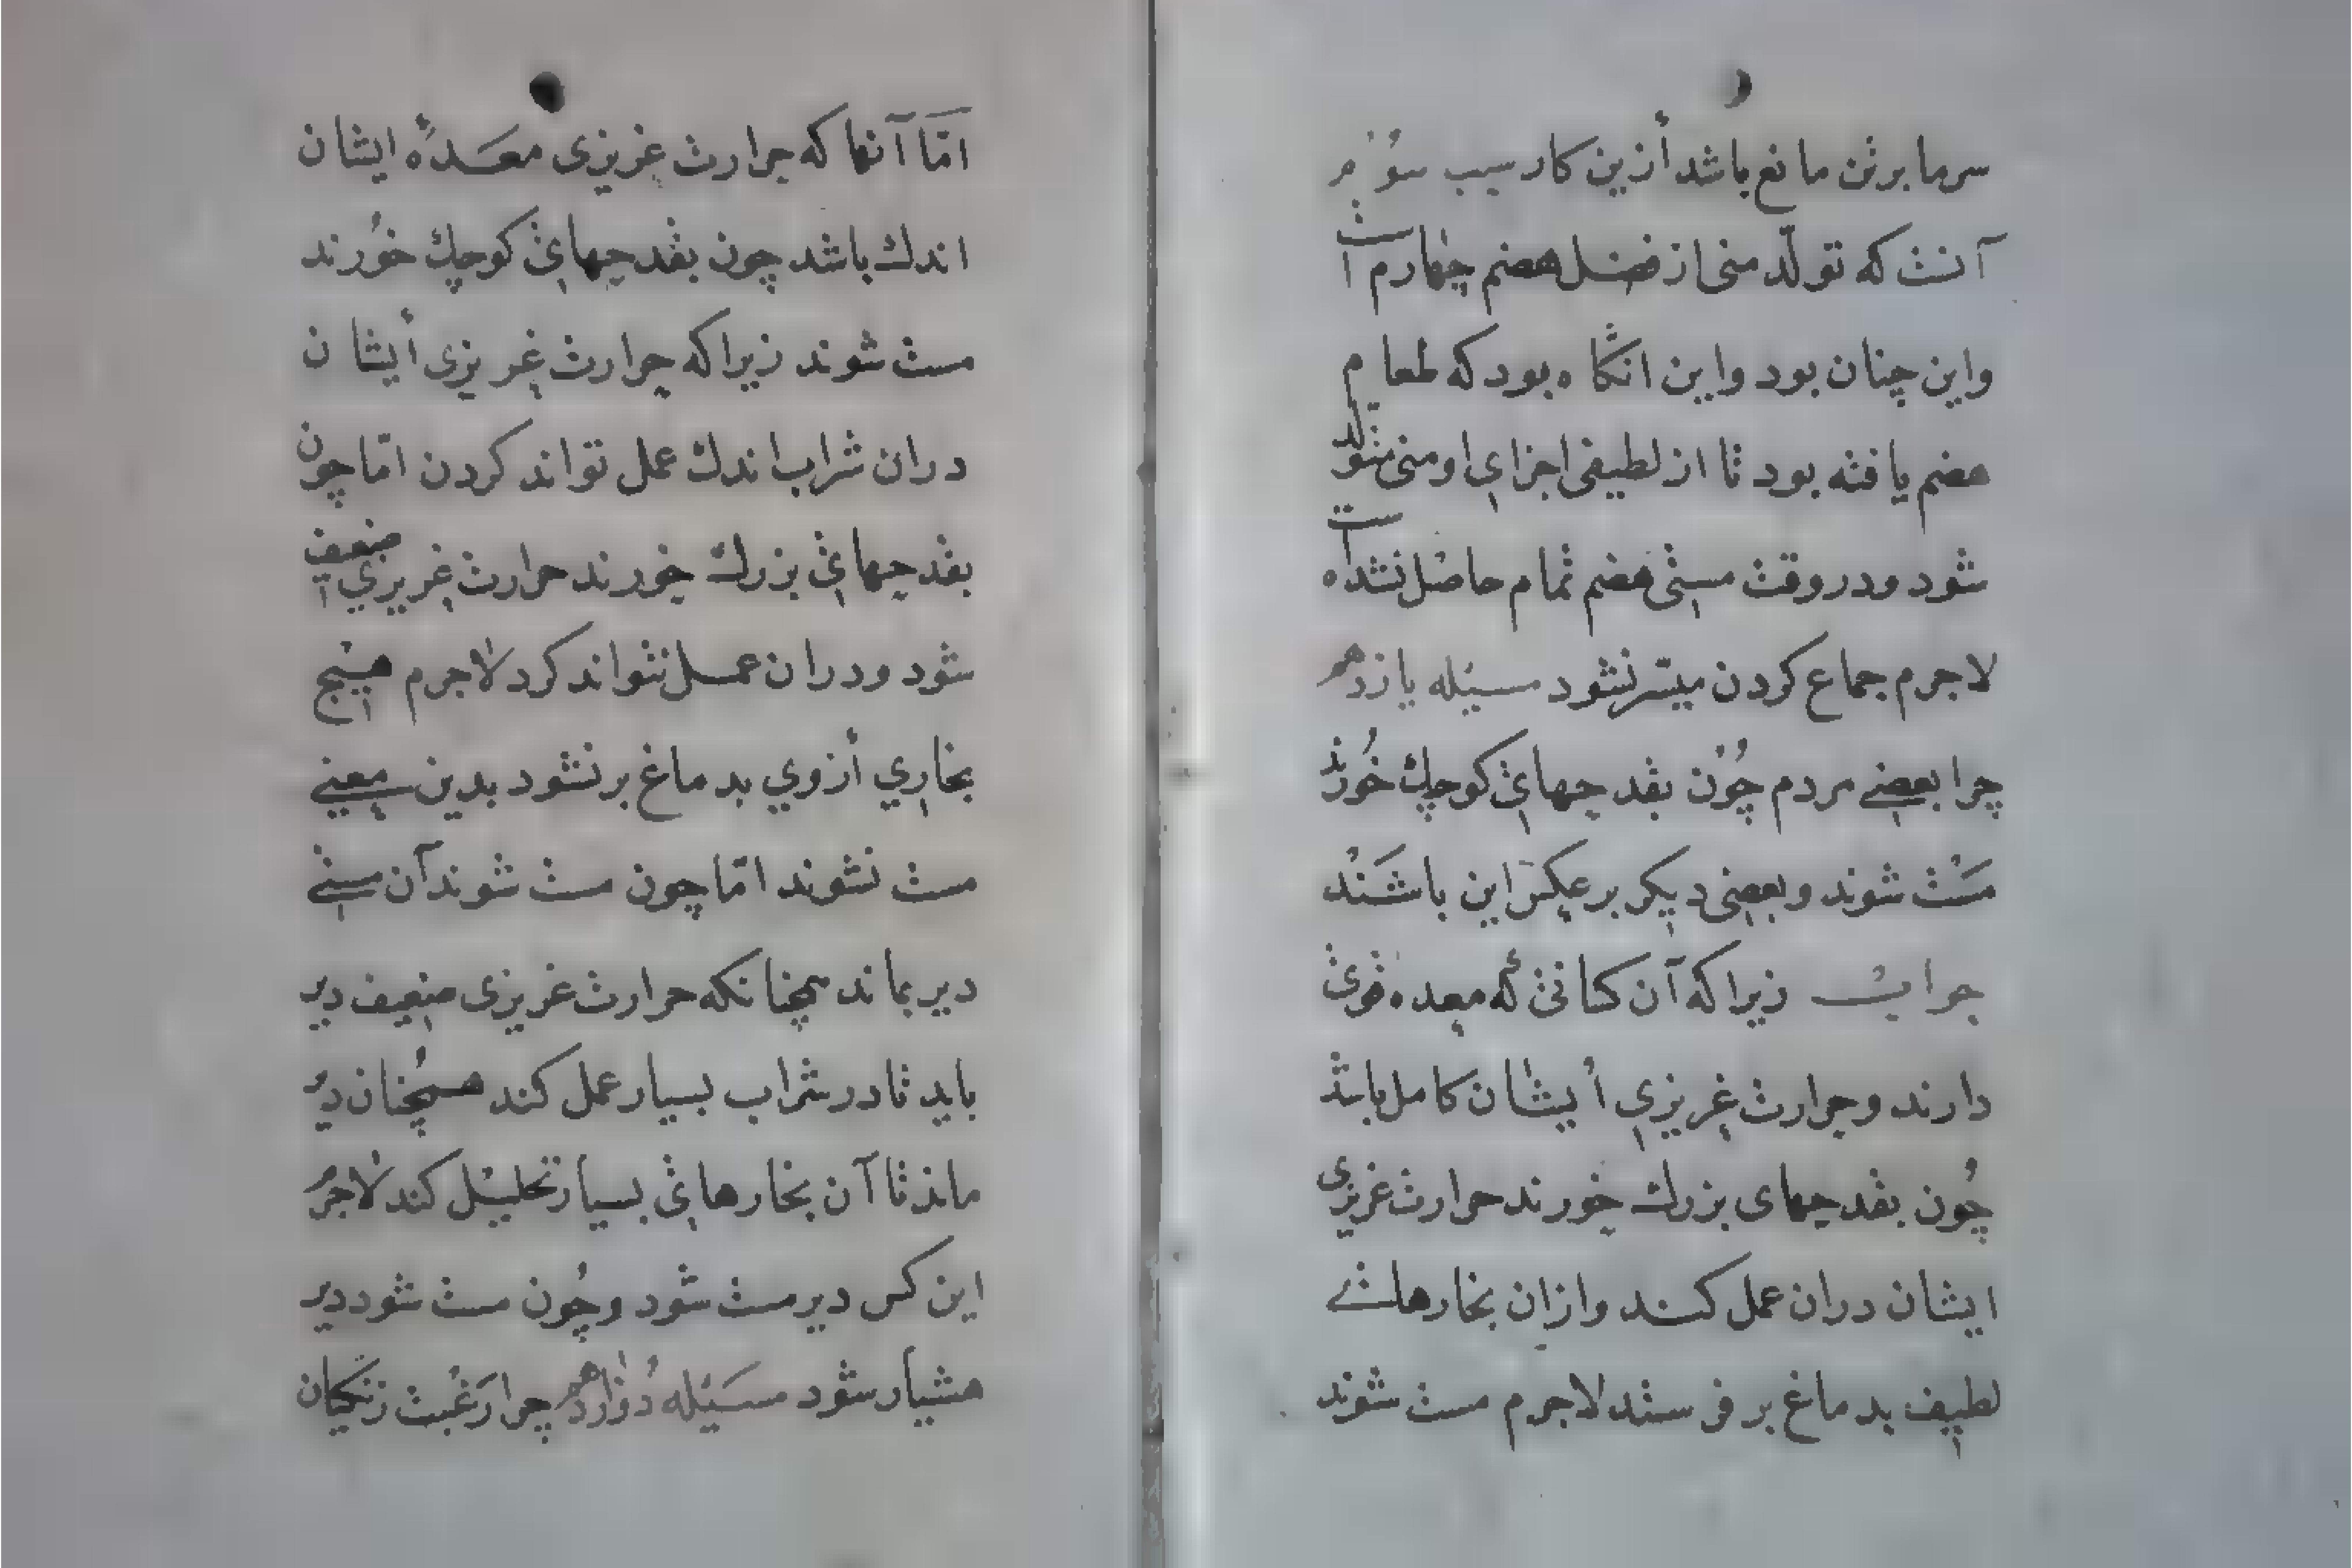 سرما برتن مانع باشد ازین کار سبب سوم
آنست که تولّد منی از فضل هضم چهارم است
واین چنان بود واین انگاه بود که طعام
هضم یافته بود تا از لطیفی اجزای او منی متولد
شود ودر وقت مستی هضم تمام حاصل نشده است
لاجرم جماع کردن میسّر نشود مسیٔله یازدهم
چرا بعضی مردم چُون بقدحهای کوچک خُورند
مَست شوند وبعضی دیکر برعکس این باشَند
جواب زیرا که آن کسانی که معده قوی
دارند وحرارت غریزی أیشان کامل باشد
چُون بقدحهای بزرک خورند حرارت غریزی
ایشان دران عمل کند وازان بخارهای
لطیف بدماغ بر فرستد لاجرم مست شوند
امّا آنها که حرارت غریزی معَدهٔ ایشان
اندک باشد چون بقدحهای کوچک خُورند
مست شوند زیرا که حرارت غریزی أیشان
دران شراب اندک عمل تواند کردن امّا چون
بقدحهای بزرک خورند حرارت غریزی ضعیف
شود ودران عمل نتواند کرد لاجرم هیچ
بخاری أزوی بدماغ برنشود بدین معنی
مست نشوند امّا چون مست شوند آن مستی
دیر بماند همچنانکه حرارت غریزی ضعیف دیر
باید تا در شراب بسیار عمل کند همچُنان دیر
ماند تا آن بخارهای بسیار تحلیل کند لاجرم
این کس دیر مست شود وچُون مست شود دیر
هشیار شود مسَیٔله دُوازدهم چرا رَغبت زنکیان